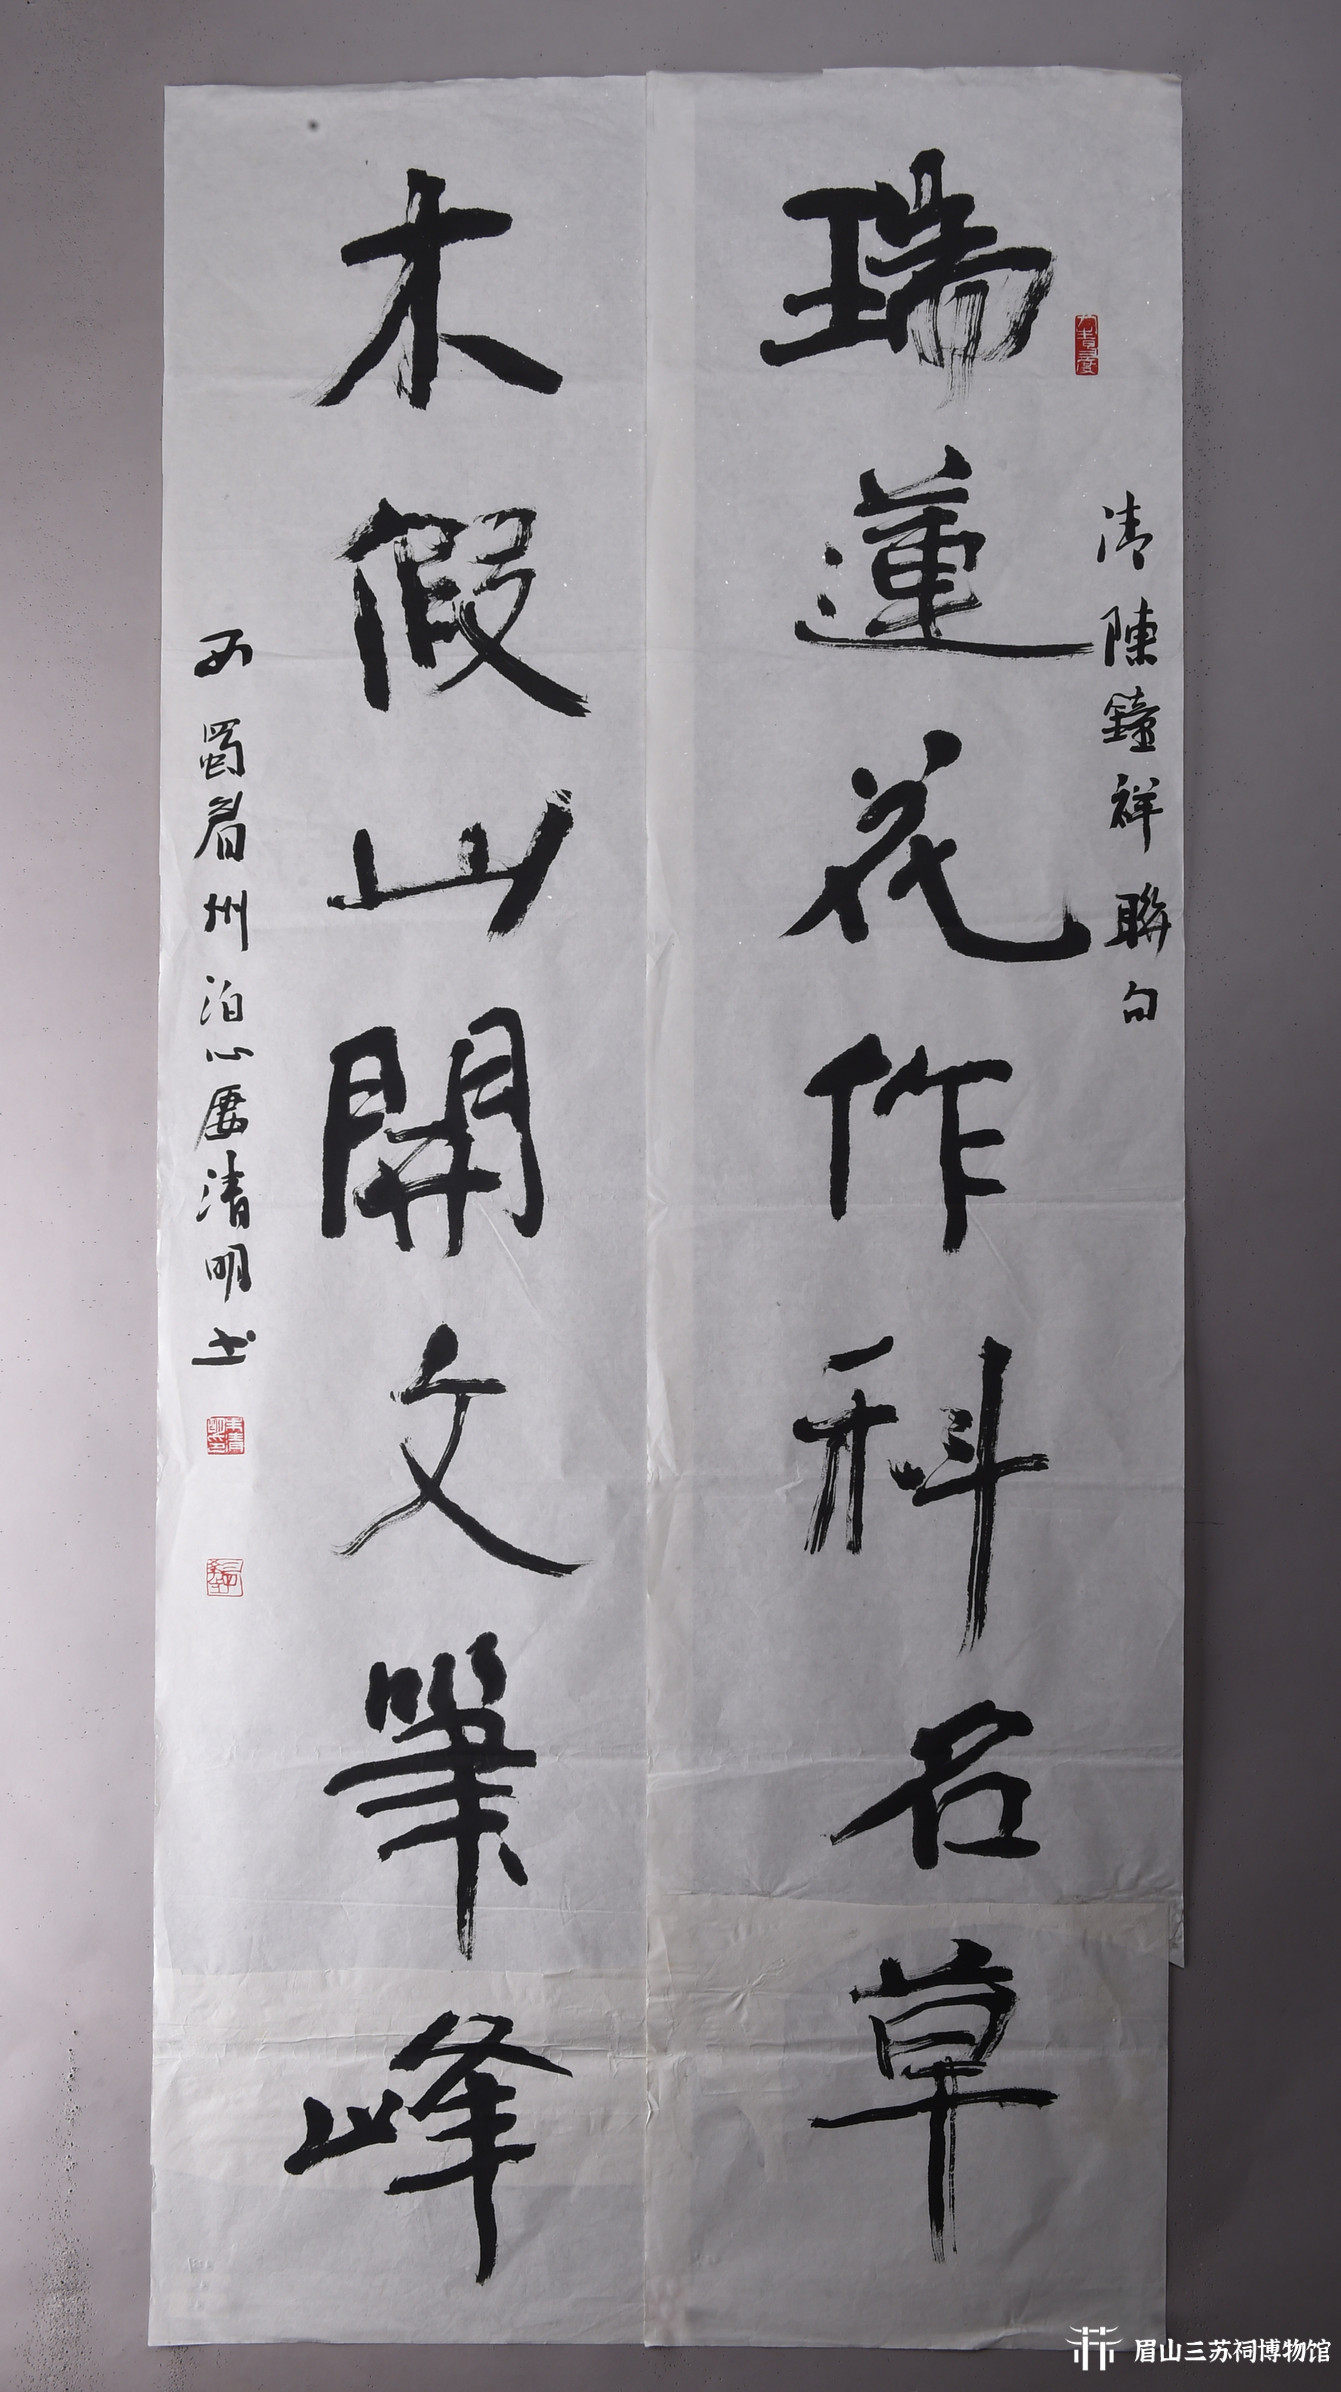 瑞蓮花作科名草
清陳鐘祥聯句
木假山開文筆峰
西蜀眉州泊心屬清明书
眉山三苏祠博物馆